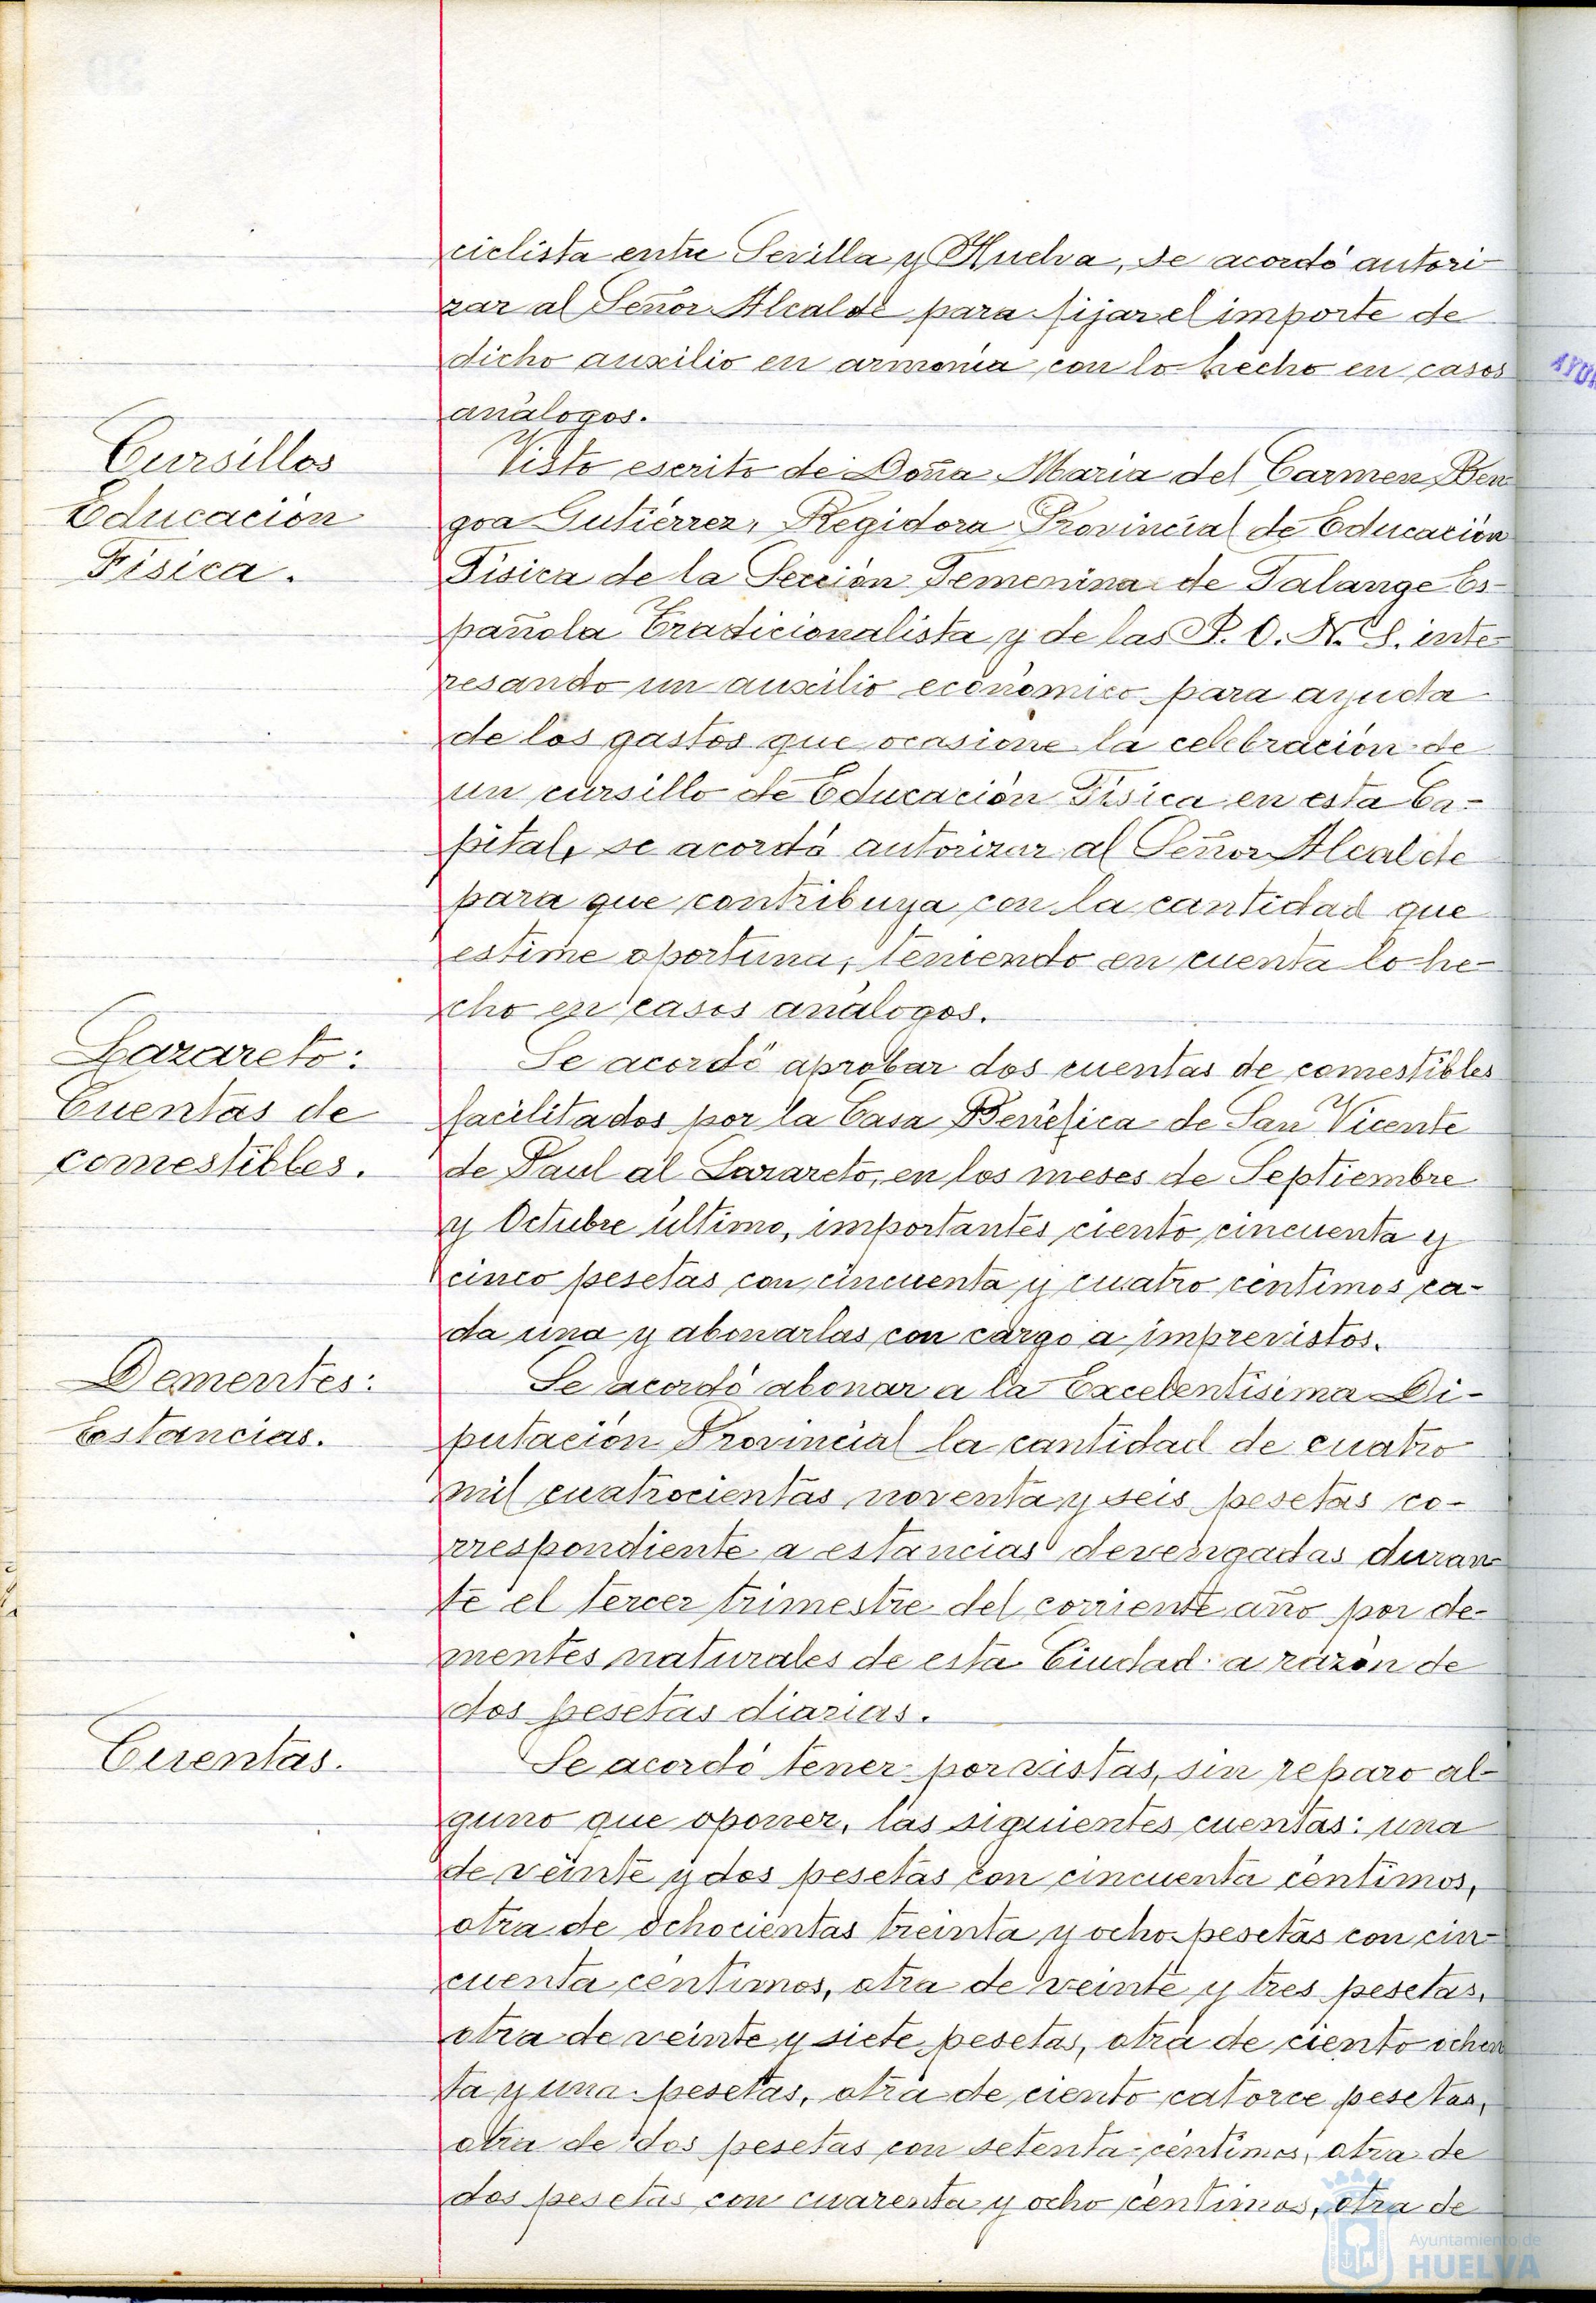 ciclista entre Sevilla y Huelva, se acordó autori-
zar al Señor Alcalde para fijar el importe de
dicho auxilio en armonía con lo hecho en casos
análogos.
Cursillos
Educación
Física.
Visto escrito de Doña Maria del Carmen Ben
goa Gutiérrez, Regidora Provincial de Educación
Física de la Sección Femenina de Falange Es-
pañola Tradicionalista y de las J. O. N. S. inte-
resando un auxilio económico para ayuda
de los gastos que ocasione la celebración de
un cursillo de Educación Física en esta Ca-
pital, se acordó autorizar al Señor Alcalde
para que contribuya con la cantidad que
estime oportuna, teniendo en cuenta lo he-
cho en casos análogos.
Lazareto:
Cuentas de
comestibles.
Se acordó aprobar dos cuentas de comestibles
facilitados por la Casa Benéfica de San Vicente
de Paul al Lazareto, en los meses de Septiembre
y Octubre último, importantes ciento cincuenta y
cinco pesetas con cincuenta y cuatro céntimos ca-
da una y abonarlas con cargo a imprevistos.
Dementes:
Estancias.
Se acordó abonar a la Excelentísima Di-
putación Provincial la cantidad de cuatro
mil cuatrocientas noventa y seis pesetas co-
rrespondiente a estancias devengadas duran
te el tercer trimestre del corriente año por de-
mentes naturales de esta Ciudad a razón de
dos pesetas diarias.
Cuentas.
Se acordó tener por vistas, sin reparo al-
guno que oponer, las siguientes cuentas: una
de veinte y dos pesetas con cincuenta céntimos,
otra de ochocientas treinta y ocho pesetas con cin-
cuenta céntimos, otra de veinte y tres pesetas,
otra de veinte y siete pesetas, otra de ciento ochen
ta y una pesetas, otra de ciento catorce pesetas,
otra de dos pesetas con setenta céntimos, otra de
dos pesetas con cuarenta y ocho céntimos, otra de
Ayuntamiento de
HUELVA